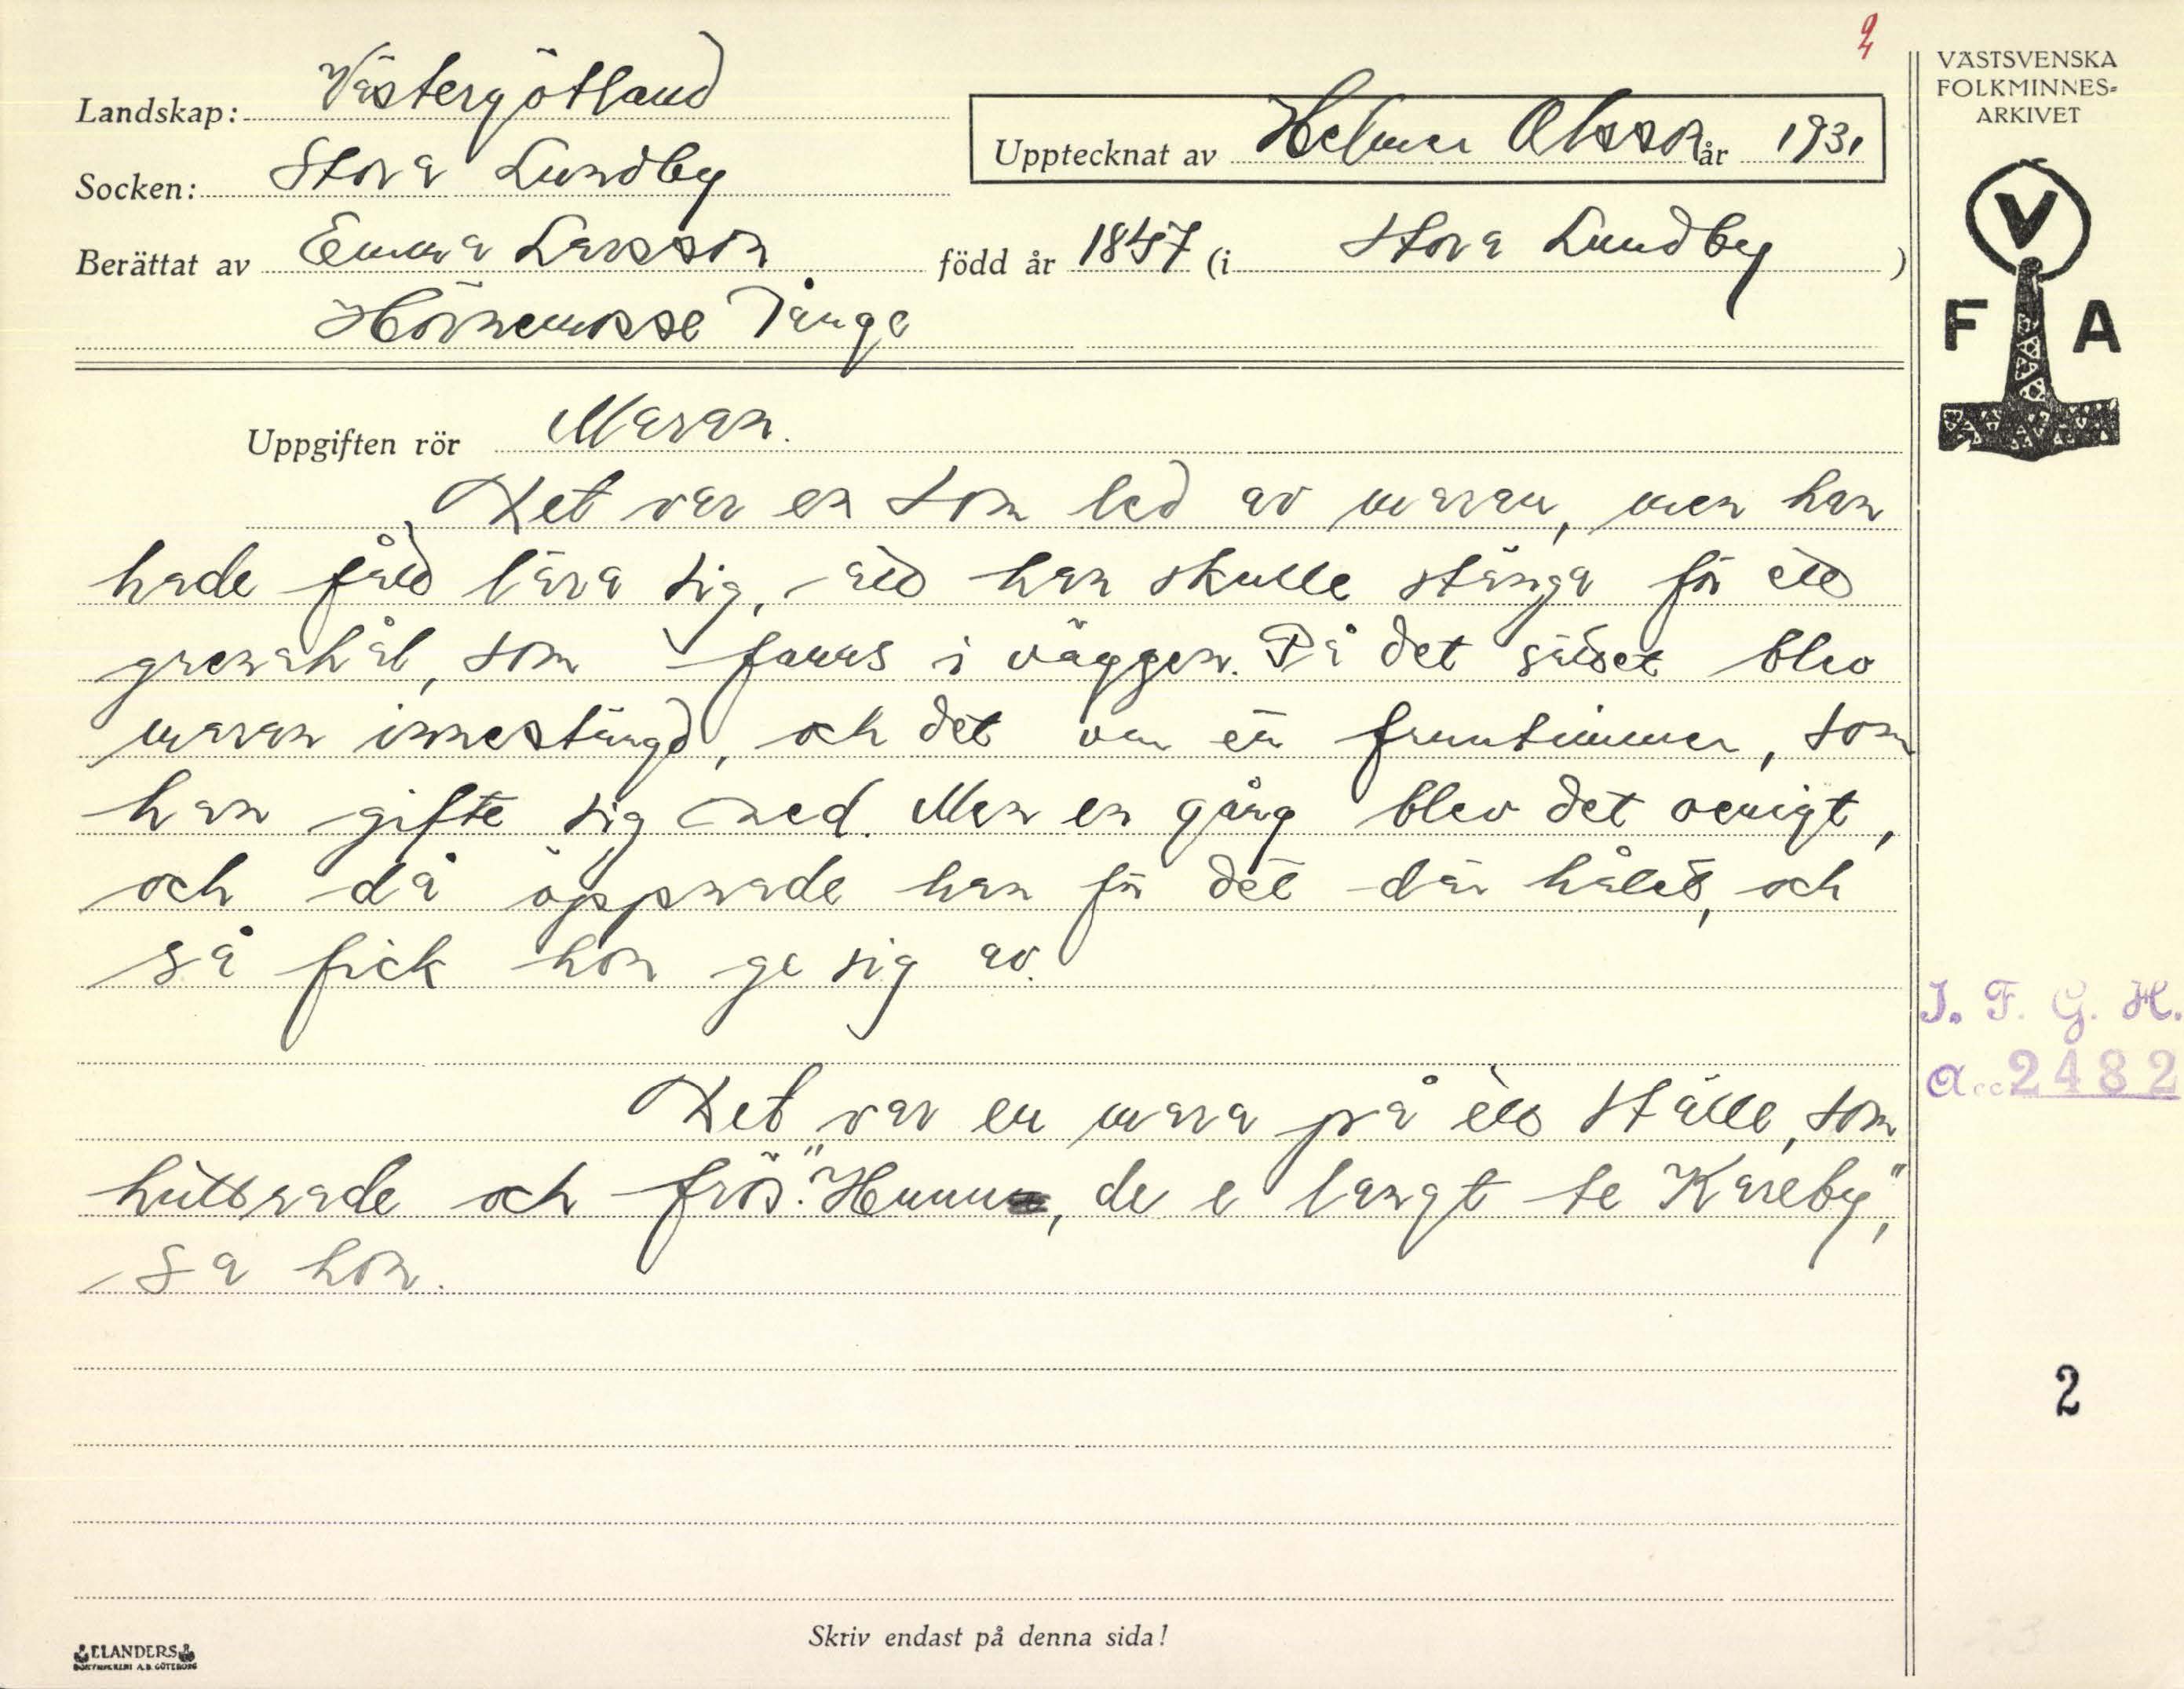 2
VÄSTSVENSKA
FOLKMINNES-
ARKIVET
Landskap: Västergötland
Upptecknat av Helmer Olsson år 1931
Socken: Stora Lundby
Berättat av Emma Larsson född år 1847 (i Stora Lundby)
Hörnemosse Tånga
V
F A
Uppgiften rör Maran.
Det var en som led av maran, men han
hade fått lära sig, att han skulle stänga för ett
grenahål, som fanns i väggen. På det sättet blev
maran innestängd, och det var en fruntimmer, som
han gifte sig med. Men en gång blev det oenigt,
och då öppnade han för det där hålet, och
så fick hon ge sig av.
I. F. G. H.
Acc 2482
Det var en mara på ett ställe, som
huttrade och frös. "Huuu, de e langt te Kareby",
sa hon.
2
Skriv endast på denna sida!
ELANDERS
BOKTRYCKERI A.B. GÖTEBORG